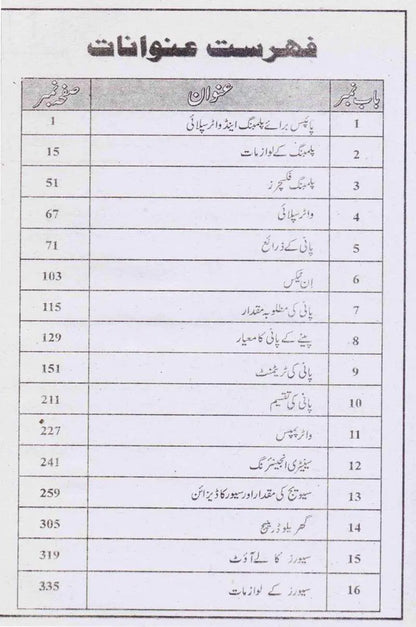 فہرست عنوانات
باب نمبر عنوان صفحہ نمبر
1 پائپس برائے پلمبنگ اینڈ واٹر سپلائی 1
2 پلمبنگ کے لوازمات 15
3 پلمبنگ فکسچرز 51
4 واٹر سپلائی 67
5 پانی کے ذرائع 71
6 اِن ٹیکس 103
7 پانی کی مطلوبہ مقدار 115
8 پینے کے پانی کا معیار 129
9 پانی کی ٹریٹمنٹ 151
10 پانی کی تقسیم 211
11 واٹر پمپس 227
12 سینیٹری انجینئرنگ 241
13 سیوریج کی مقدار اور سیور کا ڈیزائن 259
14 گھریلو ڈرینیج 305
15 سیورز کا لے آؤٹ 319
16 سیورز کے لوازمات 335